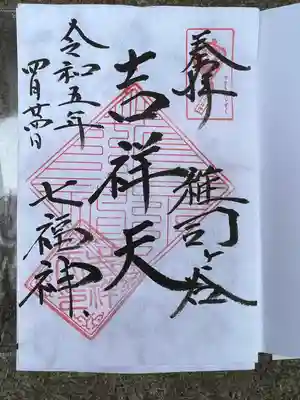 奉拝
雑司ヶ谷
吉祥天
七福神
令和五年
四月廿四日